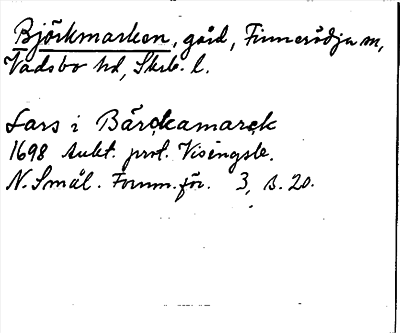 Björkmarken, gård, Finnerödja sn,
Vadsbo hd, Skrb. l.
Lars i Bärckamarck
1698 Aukt. prot. Visingsb.
N. Smål. Fornm.för. 3, s. 20.